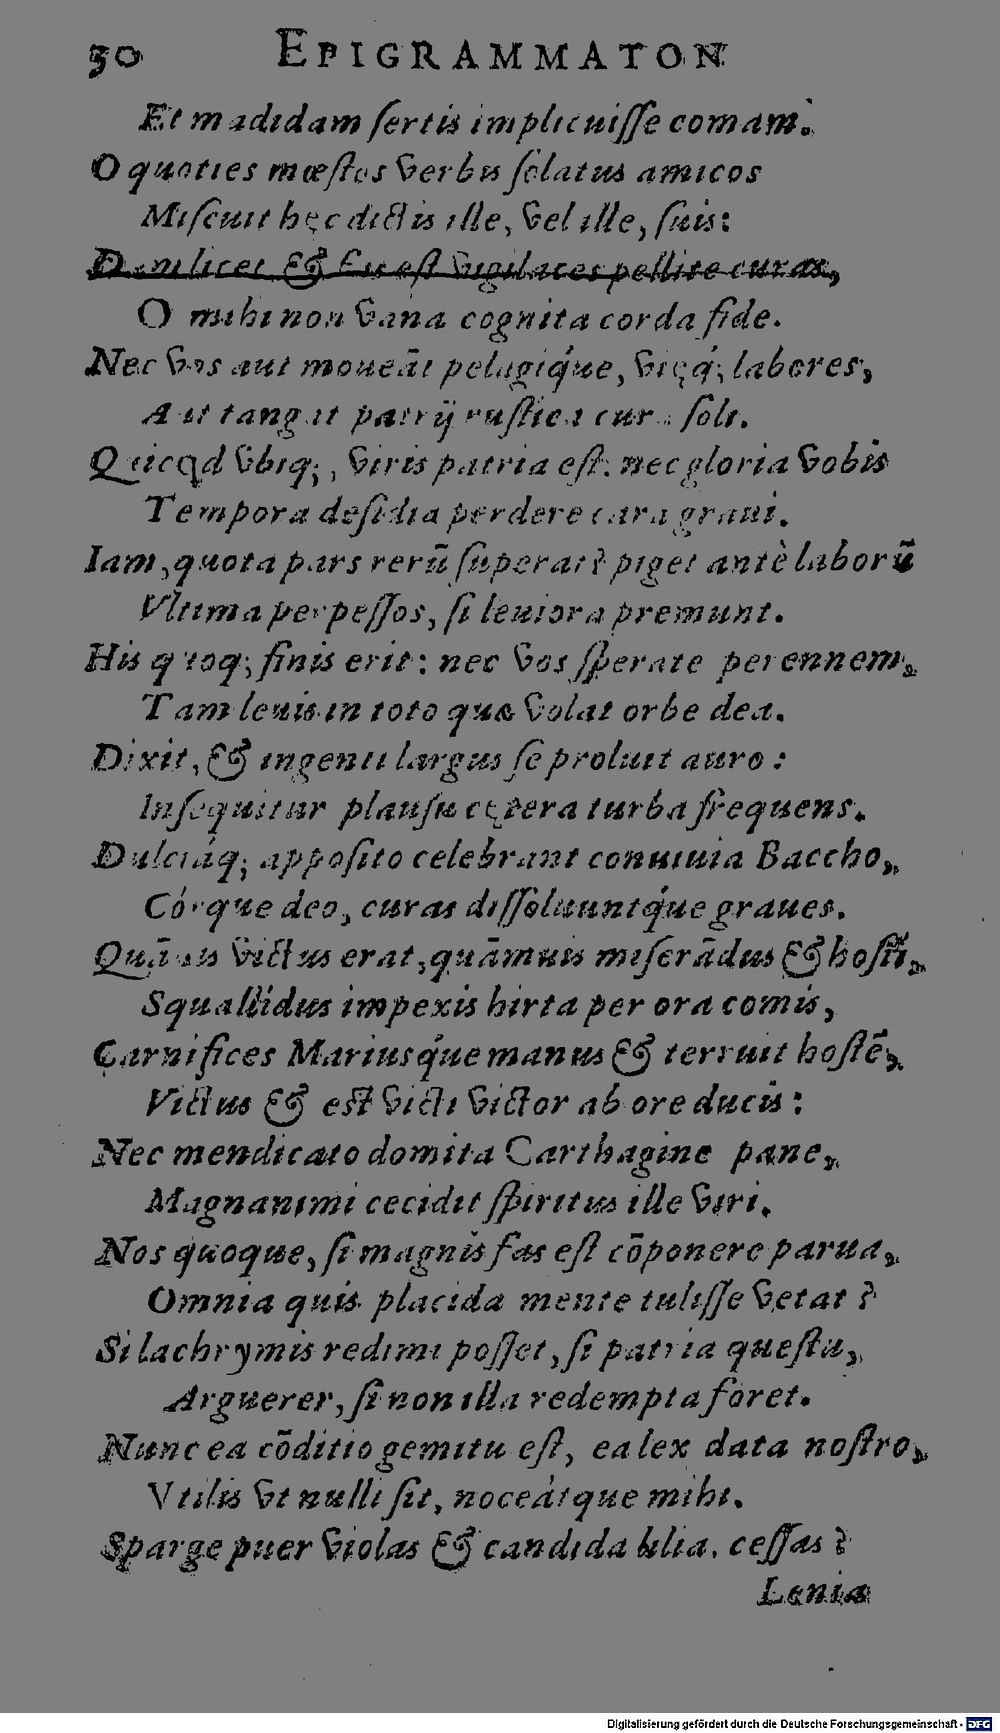 30 EPIGRAMMATON
Et madidam ſertis implicuiſſe comam.
O quoties mœſtos verbis ſolatus amicos
Miſcuit hęc dictis ille, vel ille, ſuis:
Dum licet & fas eſt vigilates pellite curas,
O mihi non vana cognita corda fide.
Nec vos aut moueāt pelagiq́ue, vięq́; labores,
Aut tangat patrij ruſtica cura ſoli.
Quicqd vbiq;, viris patria eſt. nec gloria vobis
Tempora deſidia perdere cara graui.
Iam, quota pars rerū ſuperat? piget antè laborū
Vltima perpeſſos, ſi leuiora premunt.
His quoq; finis erit: nec vos ſperate perennem,
Tam leuis in toto quæ volat orbe dea.
Dixit, & ingenti largus ſe proluit auro:
Inſequitur plauſu cętera turba frequens.
Dulciáq; appoſito celebrant conuiuia Baccho,
Córque deo, curas diſſoluuntq́ue graues.
Quāuis victus erat, quāmuis miſerādus & hoſti,
Squallidus impexis hirta per ora comis,
Carnifices Mariusq́ue manus & terruit hoſtē,
Victus & eſt victi victor ab ore ducis:
Nec mendicato domita Carthagine pane,
Magnanimi cecidit ſpiritus ille viri.
Nos quoque, ſi magnis fas eſt cōponere parua,
Omnia quis placida mente tuliſſe vetat?
Si lachrymis redimi poſſet, ſi patria queſtu,
Arguerer, ſi non illa redempta foret.
Nunc ea cōditio gemitu eſt, ea lex data noſtro,
Vtilis vt nulli ſit, noceátque mihi.
Sparge puer violas & candida lilia. ceſſas?
Lenia
Digitalisierung gefördert durch die Deutsche Forschungsgemeinschaft - DFG